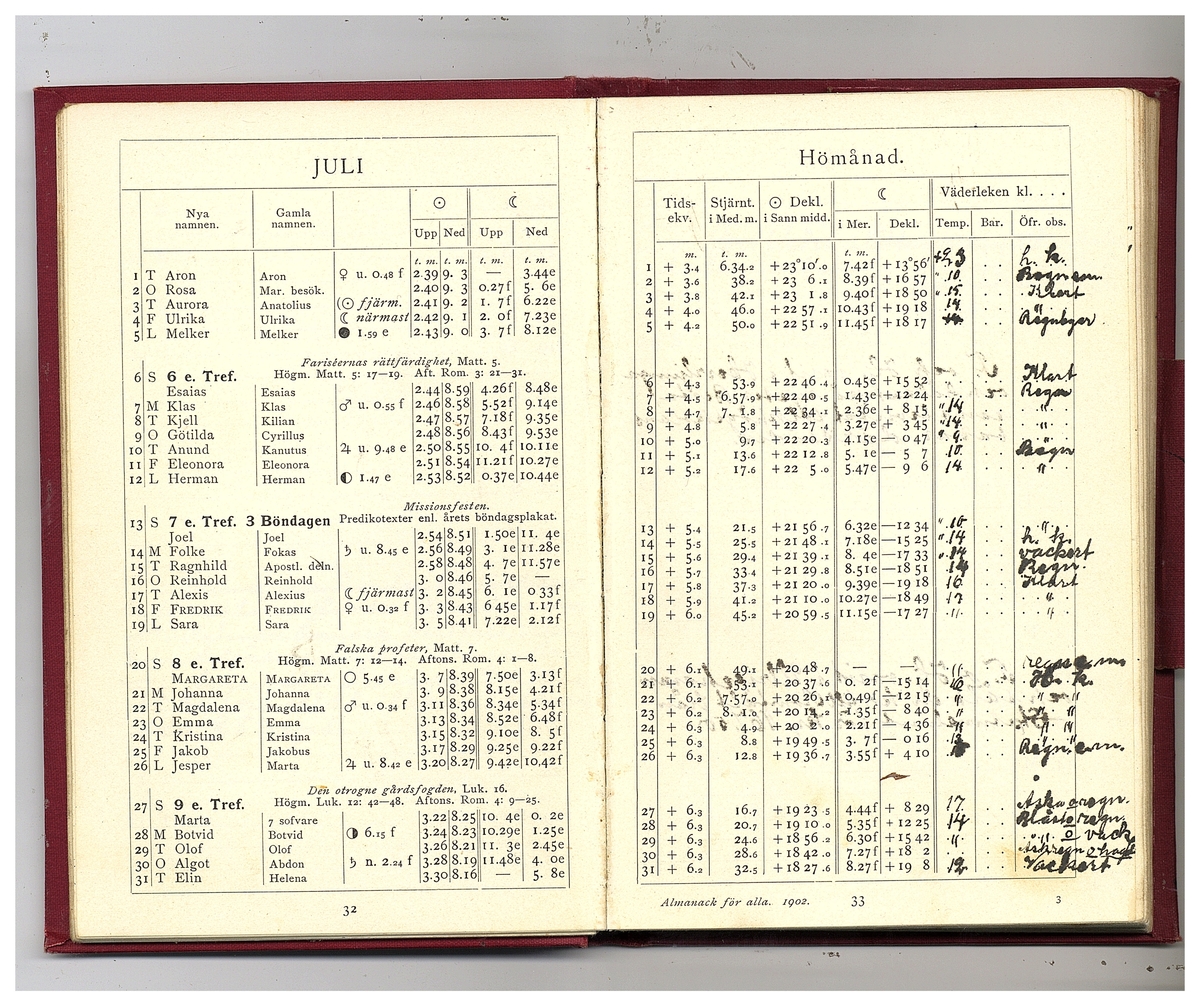 JULI
Nya namnen. Gamla namnen. ☉ ☾
Upp Ned Upp Ned
t. m. t. m. t. m. t. m.
1 T Aron Aron ♀ u. 0.48 f 2.39 9. 3 — 3.44e
2 O Rosa Mar. besök. 2.40 9. 3 0.27f 5. 6e
3 T Aurora Anatolius (☉ fjärm. 2.41 9. 2 1. 7f 6.22e
4 F Ulrika Ulrika ☾ närmast 2.42 9. 1 2. 0f 7.23e
5 L Melker Melker ● 1.59 e 2.43 9. 0 3. 7f 8.12e
Fariséernas rättfärdighet, Matt. 5.
6 S 6 e. Tref. Högm. Matt. 5: 17—19. Aft. Rom. 3: 21—31.
Esaias Esaias 2.44 8.59 4.26f 8.48e
7 M Klas Klas ♂ u. 0.55 f 2.46 8.58 5.52f 9.14e
8 T Kjell Kilian 2.47 8.57 7.18f 9.35e
9 O Götilda Cyrillus 2.48 8.56 8.43f 9.53e
10 T Anund Kanutus ♃ u. 9.48 e 2.50 8.55 10. 4f 10.11e
11 F Eleonora Eleonora 2.51 8.54 11.21f 10.27e
12 L Herman Herman ◐ 1.47 e 2.53 8.52 0.37e 10.44e
Missionsfesten.
13 S 7 e. Tref. 3 Böndagen Predikotexter enl. årets böndagsplakat.
Joel Joel 2.54 8.51 1.50e 11. 4e
14 M Folke Fokas ♄ u. 8.45 e 2.56 8.49 3. 1e 11.28e
15 T Ragnhild Apostl. deln. 2.58 8.48 4. 7e 11.57e
16 O Reinhold Reinhold 3. 0 8.46 5. 7e —
17 T Alexis Alexius ☾ fjärmast 3. 2 8.45 6. 1e 0 33f
18 F FREDRIK FREDRIK ♀ u. 0.32 f 3. 3 8.43 6 45e 1.17f
19 L Sara Sara 3. 5 8.41 7.22e 2.12f
Falska profeter, Matt. 7.
20 S 8 e. Tref. Högm. Matt. 7: 12—14. Aftons. Rom. 4: 1—8.
MARGARETA MARGARETA ○ 5.45 e 3. 7 8.39 7.50e 3.13f
21 M Johanna Johanna 3. 9 8.38 8.15e 4.21f
22 T Magdalena Magdalena ♂ u. 0.34 f 3.11 8.36 8.34e 5.34f
23 O Emma Emma 3.13 8.34 8.52e 6.48f
24 T Kristina Kristina 3.15 8.32 9.10e 8. 5f
25 F Jakob Jakobus 3.17 8.29 9.25e 9.22f
26 L Jesper Marta ♃ u. 8.42 e 3.20 8.27 9.42e 10.42f
Den otrogne gårdsfogden, Luk. 16.
27 S 9 e. Tref. Högm. Luk. 12: 42—48. Aftons. Rom. 4: 9—25.
Marta 7 sofvare 3.22 8.25 10. 4e 0. 2e
28 M Botvid Botvid ◑ 6.15 f 3.24 8.23 10.29e 1.25e
29 T Olof Olof 3.26 8.21 11. 3e 2.45e
30 O Algot Abdon ♄ n. 2.24 f 3.28 8.19 11.48e 4. 0e
31 T Elin Helena 3.30 8.16 — 5. 8e
32
Hömånad.
Tids-ekv. Stjärnt. i Med. m. ☉ Dekl. i Sann midd. ☾ Väderleken kl. . . .
i Mer. Dekl. Temp. Bar. Öfr. obs.
m. t. m. t. m.
1 + 3.4 6.34.2 +23°10'.0 7.42f +13°56' h. k.
2 + 3.6 38.2 +23 6.1 8.39f +16 57 " 10. . .
3 + 3.8 42.1 +23 1.8 9.40f +18 50 " 15. . . Klart
4 + 4.0 46.0 +22 57.1 10.43f +19 18 14. . . "
5 + 4.2 50.0 +22 51.9 11.45f +18 17 . . Regnbyar
6 + 4.3 53.9 +22 46.4 0.45e +15 52 . . Klart
7 + 4.5 6.57.9 +22 40.5 1.43e +12 24 . . Regn
8 + 4.7 7. 1.8 +22 34.1 2.36e + 8 15 " 14 . . "
9 + 4.8 5.8 +22 27.4 3.27e + 3 45 " 14. . . "
10 + 5.0 9.7 +22 20.3 4.15e — 0 47 " 9. . . "
11 + 5.1 13.6 +22 12.8 5. 1e — 5 7 10. . . Regn
12 + 5.2 17.6 +22 5.0 5.47e — 9 6 14. . . "
13 + 5.4 21.5 +21 56.7 6.32e —12 34 " 16 . . "
14 + 5.5 25.5 +21 48.1 7.18e —15 25 " 14 . . h. k.
15 + 5.6 29.4 +21 39.1 8. 4e —17 33 " 14 . . vackert
16 + 5.7 33.4 +21 29.8 8.51e —18 51 14 . . Regn.
17 + 5.8 37.3 +21 20.0 9.39e —19 18 16. . . Klart
18 + 5.9 41.2 +21 10.0 10.27e —18 49 17 . . "
19 + 6.0 45.2 +20 59.5 11.15e —17 27 " . . "
20 + 6.1 49.1 +20 48.7 — — " . .
21 + 6.1 53.1 +20 37.6 0. 2f —15 14 . . H. k.
22 + 6.2 7.57.0 +20 26.0 0.49f —12 15 " . . " "
23 + 6.2 8. 1.0 +20 14.0 1.35f — 8 40 " . . " "
24 + 6.3 4.9 +20 2.0 2.21f — 4 36 " . . " "
25 + 6.3 8.8 +19 49.5 3. 7f — 0 16 . .
26 + 6.3 12.8 +19 36.7 3.55f + 4 10 . .
27 + 6.3 16.7 +19 23.5 4.44f + 8 29 17. . . Åska o regn.
28 + 6.3 20.7 +19 10.0 5.35f +12 25 14 . . Blåst o regn.
29 + 6.3 24.6 +18 56.2 6.30f +15 42 " . . " o vack.
30 + 6.3 28.6 +18 42.0 7.27f +18 2 " . .
31 + 6.2 32.5 +18 27.6 8.27f +19 8 12. . . Vackert
Almanack för alla. 1902. 33 3